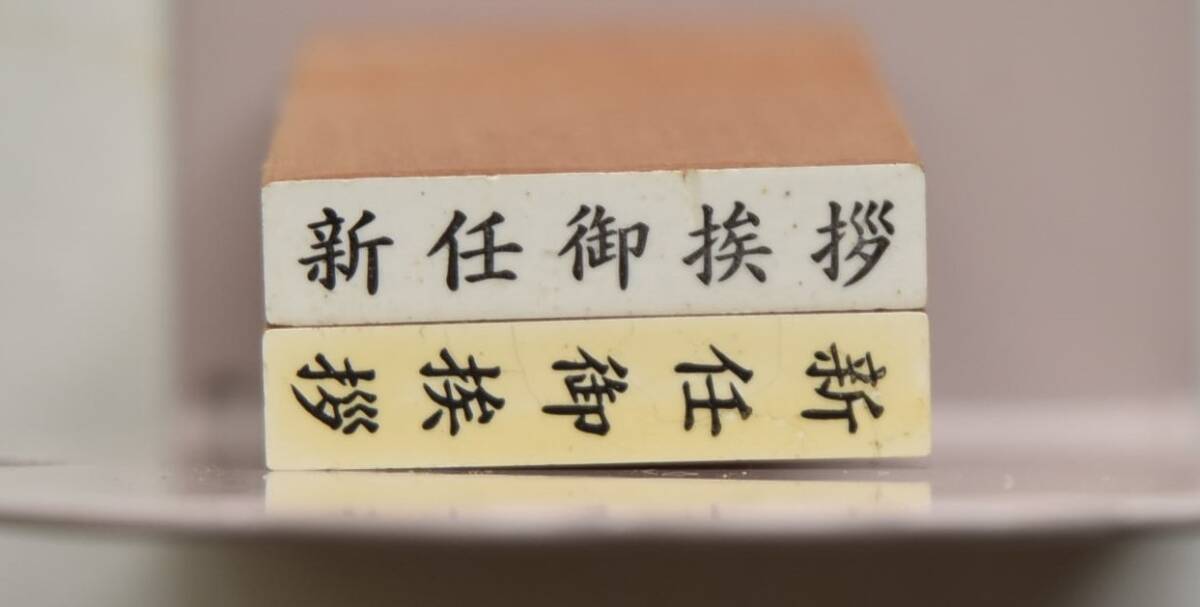 新任御挨拶
新任御挨拶